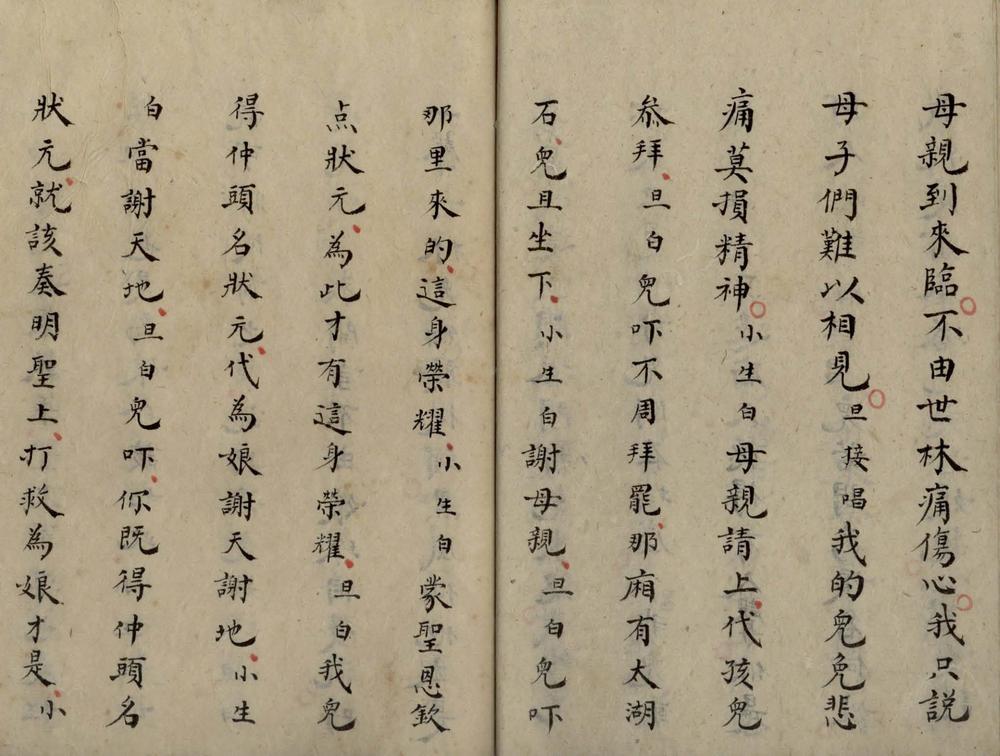 母親到來臨不由世林痛傷心我只說
母子們難以相見旦接唱我的兒免悲
痛莫損精神小生白母親請上代孩兒
叅拜旦白兒吓不周拜罷那廂有太湖
石兒且坐下小生白謝母親旦白兒吓
那里來的這身榮耀小生白蒙聖恩欽
点狀元為此才有這身榮耀旦白我兒
得仲頭名狀元代為娘謝天謝地小生
白當謝天地旦白兒吓你既得仲頭名
狀元就該奏明聖上打救為娘才是小